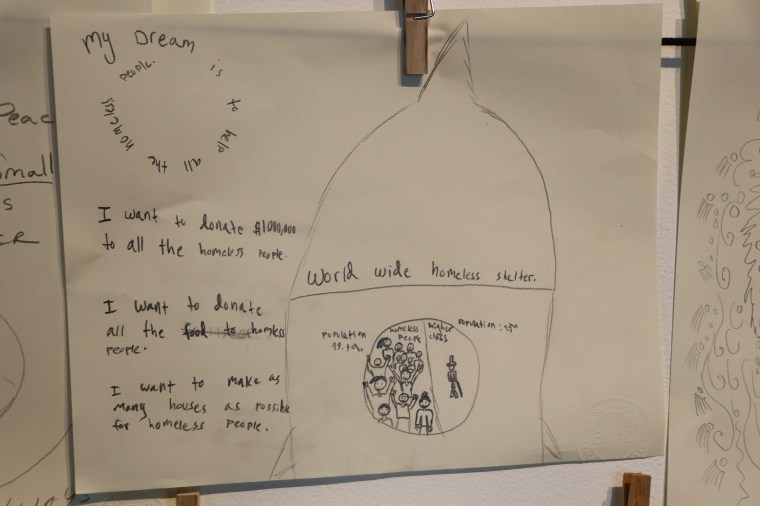 My Dream
is
to
help
all
the
homeless
people.
I want to donate $1,000,000
to all the homeless people.
I want to donate
all the food to homless
people.
I want to make as
many houses as possible
for homeless people.
World wide homeless shelter.
population
99.9%
homeless
people
higher
class
Peac
Small
S
ER